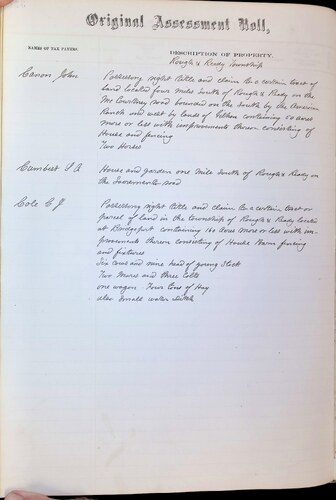 Original Assessment Roll,
NAMES OF TAX PAYERS.
DESCRIPTION OF PROPERTY.
Rough & Ready Township
Canon John
Possessory right title and claim to a certain tract of
land located four miles South of Rough & Ready on the
McCourtney road bounded on the South by the
Ranch and west by lands of containing 50 acres
more or less with improvements thereon consisting of
House and fencing
Two Horses
Cumbert S A
House and garden one mile South of Rough & Ready on
the Sacramento road
Cole C J
Possessory right title and claim to a certain tract or
parcel of land in the township of Rough & Ready located
at Bridgeport containing 160 acres more or less with im-
provements thereon consisting of House Barn fencing
and fixtures
Six cows and nine head of young Stock
Two Mares and three Colts
one wagon Four tons of Hay
also small water Ditch